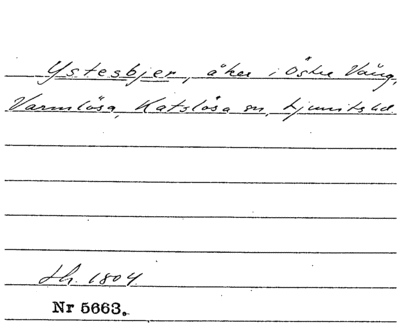 Ystesbjer, åker i Östre Vång,
Varmlösa, Katslösa sn, Ljunits hd.
Lh. 1804
Nr 5663.